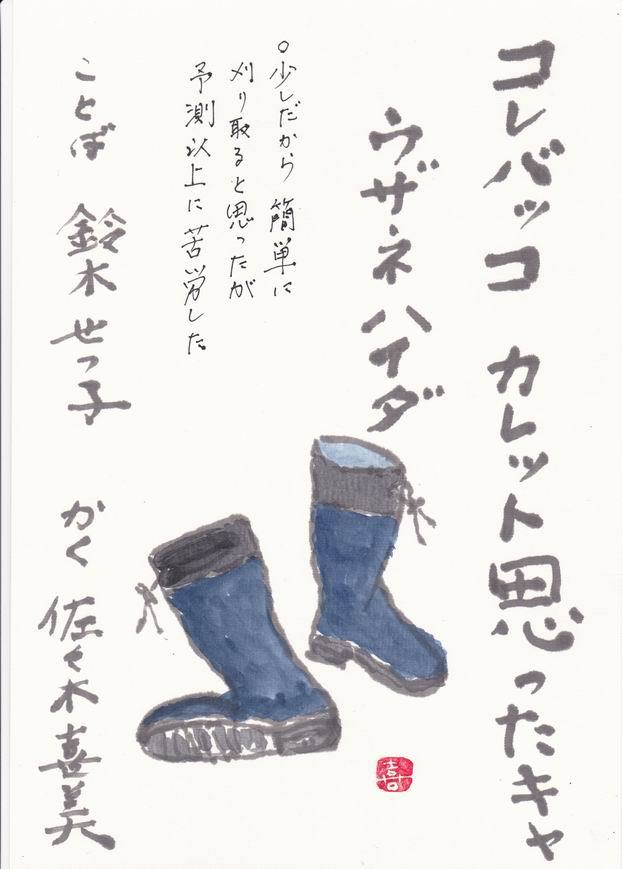 コレバッコ　カレット思ったキャ
ウザネハイダ
○少しだから　簡単に
刈り取ると思ったが
予測以上に苦労した
ことば　鈴木せつ子
かく　佐々木喜美
喜